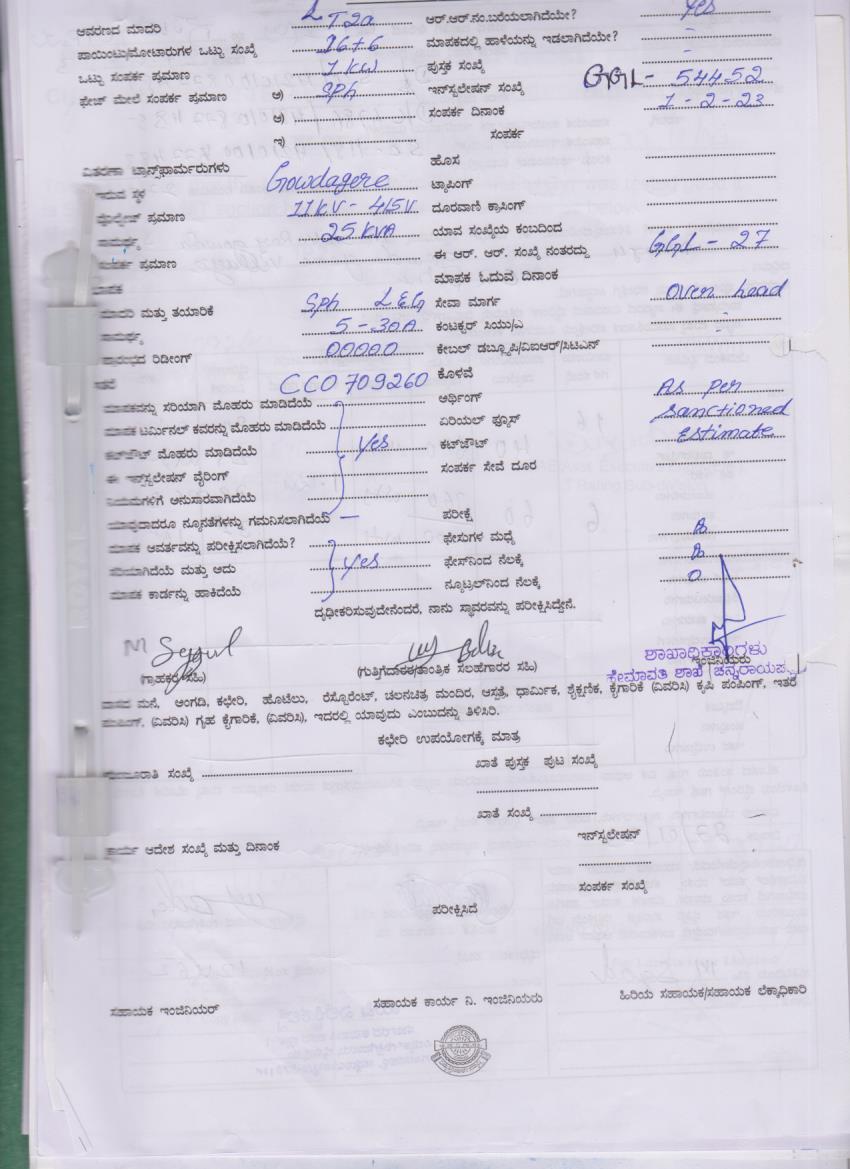 ಆವರಣದ ಮಾದರಿ LT2a ಆರ್.ಆರ್.ನಂ.ಬರೆಯಲಾಗಿದೆಯೇ? Yes
ಪಾಯಿಂಟು/ಮೋಟಾರುಗಳ ಒಟ್ಟು ಸಂಖ್ಯೆ 16+6 ಮಾಪಕದಲ್ಲಿ ಹಾಳೆಯನ್ನು ಇಡಲಾಗಿದೆಯೇ? -
ಒಟ್ಟು ಸಂಪರ್ಕ ಪ್ರಮಾಣ 1 KW ಪುಸ್ತಕ ಸಂಖ್ಯೆ -
ಫೇಜ್ ಮೇಲೆ ಸಂಪರ್ಕ ಪ್ರಮಾಣ ಅ) SPh ಇನ್‌ಸ್ಟಲೇಷನ್ ಸಂಖ್ಯೆ GGL- 54452
ಆ) ಸಂಪರ್ಕ ದಿನಾಂಕ 1-2-23
ಇ) ಸಂಪರ್ಕ
ವಿತರಣಾ ಟ್ರಾನ್ಸ್‌ಫಾರ್ಮರುಗಳು ಹೊಸ
ಇರುವ ಸ್ಥಳ Gowdagere ಟ್ಯಾಪಿಂಗ್
ವೋಲ್ಟೇಜ್ ಪ್ರಮಾಣ 11KV- 415V ದೂರವಾಣಿ ಕ್ರಾಸಿಂಗ್
ಸಾಮರ್ಥ್ಯ 25 KVA ಯಾವ ಸಂಖ್ಯೆಯ ಕಂಬದಿಂದ
ಸಂಪರ್ಕ ಪ್ರಮಾಣ ಈ ಆರ್. ಆರ್. ಸಂಖ್ಯೆ ನಂತರದ್ದು GGL - 27
ಮಾಪಕ ಮಾಪಕ ಓದುವ ದಿನಾಂಕ
ಮಾದರಿ ಮತ್ತು ತಯಾರಿಕೆ SPh L&G ಸೇವಾ ಮಾರ್ಗ Over head
ಸಾಮರ್ಥ್ಯ 5-30A ಕಂಟಕ್ಟರ್ ಸಿಯು/ಎ -
ಪ್ರಾರಂಭದ ರಿಡೀಂಗ್ 00000 ಕೇಬಲ್ ಡಬ್ಲ್ಯೂಪಿ/ವಿಐಆರ್/ಸಿಟಿಎನ್
CCO 709260 ಕೊಳವೆ
ಮಾಪಕವನ್ನು ಸರಿಯಾಗಿ ಮೊಹರು ಮಾಡಿದೆಯೆ ಅರ್ಥಿಂಗ್ As per
ಮಾಪಕ ಟರ್ಮಿನಲ್ ಕವರನ್ನು ಮೊಹರು ಮಾಡಿದೆಯೆ ಏರಿಯಲ್ ಫ್ಯೂಸ್ Sanctioned
ಕಟ್‌ಔಟ್ ಮೊಹರು ಮಾಡಿದೆಯೆ Yes ಕಟ್‌ಔಟ್ Estimate
ಈ ಇನ್‌ಸ್ಟಲೇಷನ್ ವೈರಿಂಗ್ ಸಂಪರ್ಕ ಸೇವೆ ದೂರ
ನಿಯಮಗಳಿಗೆ ಅನುಸಾರವಾಗಿದೆಯೆ
ಯಾವುದಾದರೂ ನ್ಯೂನತೆಗಳನ್ನು ಗಮನಿಸಲಾಗಿದೆಯೆ — ಪರೀಕ್ಷೆ
ಮಾಪಕ ಆವರ್ತವನ್ನು ಪರೀಕ್ಷಿಸಲಾಗಿದೆಯೆ? ಫೇಸುಗಳ ಮಧ್ಯೆ
ಸರಿಯಾಗಿದೆಯೆ ಮತ್ತು ಅದು Yes ಫೇಸ್‌ನಿಂದ ನೆಲಕ್ಕೆ
ಮಾಪಕ ಕಾರ್ಡನ್ನು ಹಾಕಿದೆಯೆ ನ್ಯೂಟ್ರಲ್‌ನಿಂದ ನೆಲಕ್ಕೆ 0
ದೃಢೀಕರಿಸುವುದೇನೆಂದರೆ, ನಾನು ಸ್ಥಾವರವನ್ನು ಪರೀಕ್ಷಿಸಿದ್ದೇನೆ.
ಶಾಖಾಧಿಕಾರಿಗಳು
(ಗ್ರಾಹಕರ ಸಹಿ) (ಗುತ್ತಿಗೆದಾರರ/ತಾಂತ್ರಿಕ ಸಲಹೆಗಾರರ ಸಹಿ) ಇಂಜಿನಿಯರು
ಹೇಮಾವತಿ ಶಾಖೆ
ವಾಸದ ಮನೆ, ಅಂಗಡಿ, ಕಛೇರಿ, ಹೊಟೆಲು, ರೆಸ್ಟೊರೆಂಟ್, ಚಲನಚಿತ್ರ ಮಂದಿರ, ಆಸ್ಪತ್ರೆ, ಧಾರ್ಮಿಕ, ಶೈಕ್ಷಣಿಕ, ಕೈಗಾರಿಕೆ (ವಿವರಿಸಿ) ಕೃಷಿ ಪಂಪಿಂಗ್, ಇತರೆ
ಪಂಪಿಂಗ್, (ವಿವರಿಸಿ) ಗೃಹ ಕೈಗಾರಿಕೆ, (ವಿವರಿಸಿ), ಇದರಲ್ಲಿ ಯಾವುದು ಎಂಬುದನ್ನು ತಿಳಿಸಿರಿ.
ಕಛೇರಿ ಉಪಯೋಗಕ್ಕೆ ಮಾತ್ರ
ಸಂಖ್ಯೆ ಖಾತೆ ಪುಸ್ತಕ ಪುಟ ಸಂಖ್ಯೆ
ಖಾತೆ ಸಂಖ್ಯೆ
ಕಾರ್ಯ ಆದೇಶ ಸಂಖ್ಯೆ ಮತ್ತು ದಿನಾಂಕ ಇನ್‌ಸ್ಟಲೇಷನ್
ಸಂಪರ್ಕ ಸಂಖ್ಯೆ
ಪರೀಕ್ಷಿಸಿದೆ
ಸಹಾಯಕ ಇಂಜಿನಿಯರ್ ಸಹಾಯಕ ಕಾರ್ಯ ನಿ. ಇಂಜಿನಿಯರು ಹಿರಿಯ ಸಹಾಯಕ/ಸಹಾಯಕ ಲೆಕ್ಕಾಧಿಕಾರಿ